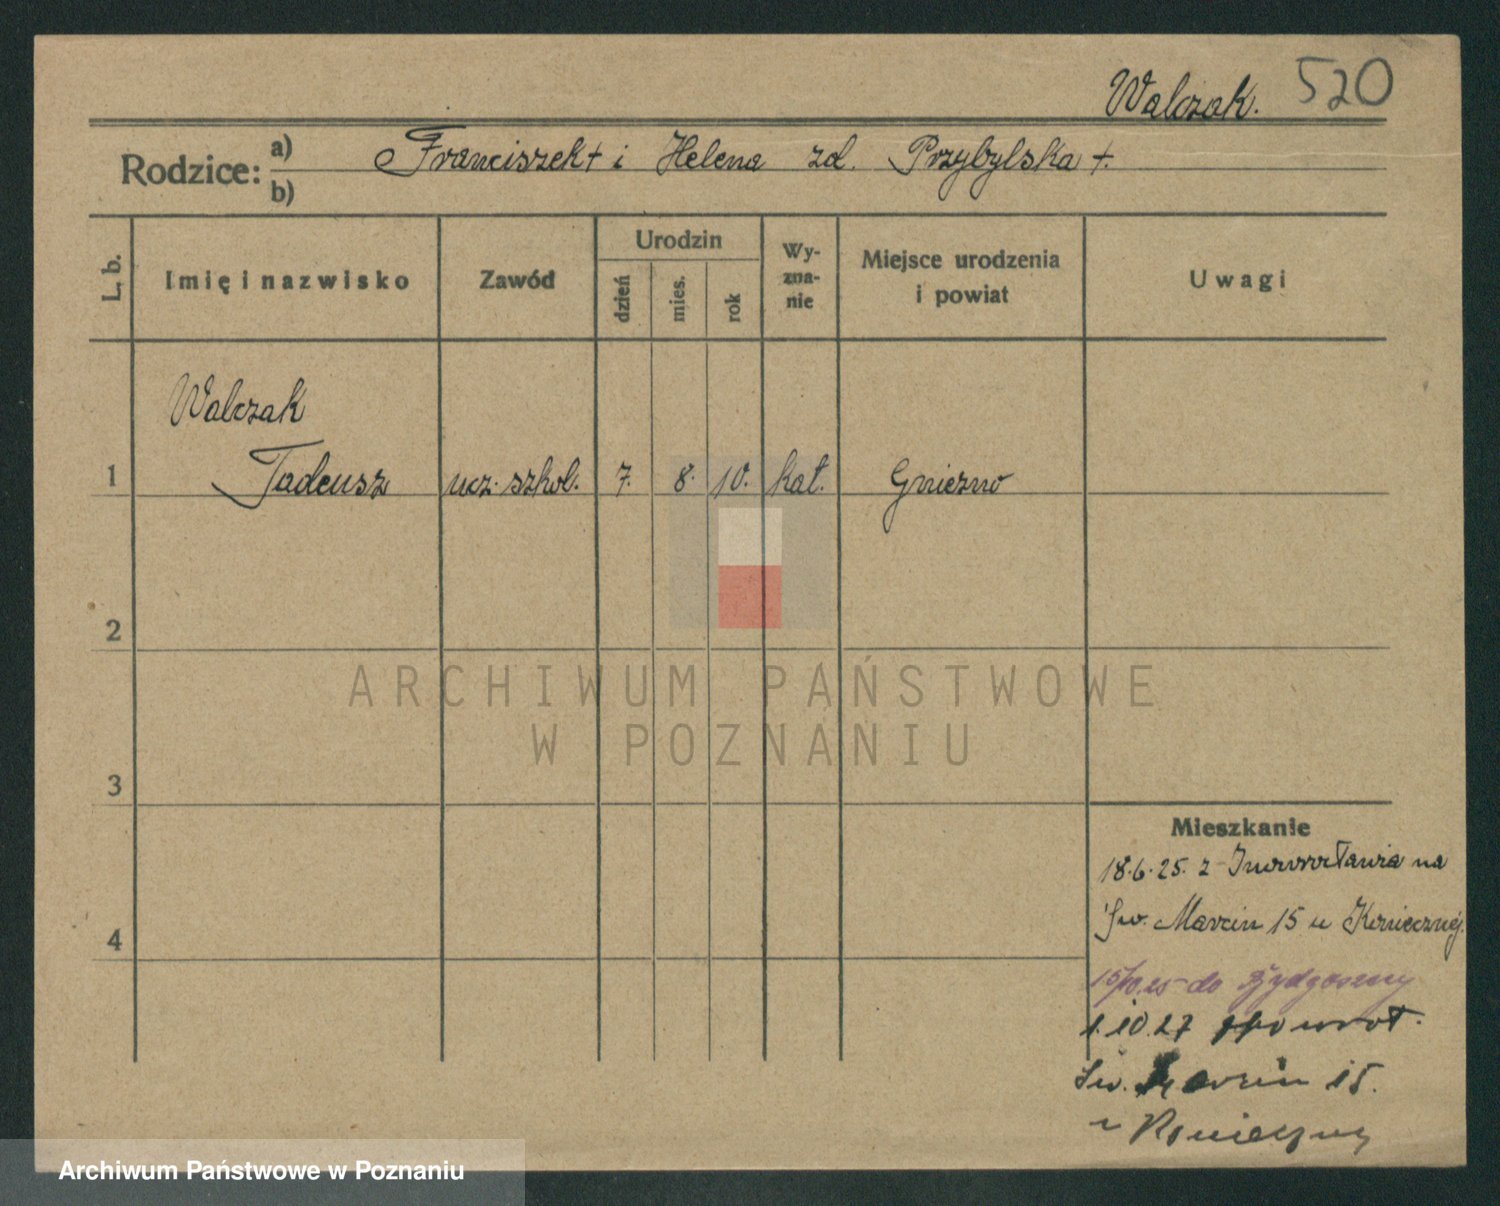 Walczak. 520
Rodzice: a) Franciszek † i Helena zd. Przybylska †.
b)
L. b.
Imię i nazwisko
Zawód
Urodzin
dzień
mies.
rok
Wy-
zna-
nie
Miejsce urodzenia
i powiat
Uwagi
Walczak
1 Tadeusz ucz. szkol. 7. 8. 10. kat. Gniezno
2
3
4
Mieszkanie
18.6.25. z Inowrocławia na
Św. Marcin 15 u Koniecznej.
15/10.25 do Bydgoszczy
1.10.27 spowrot.
Św. Marcin 15.
u Konieczny
ARCHIWUM PAŃSTWOWE
W POZNANIU
Archiwum Państwowe w Poznaniu